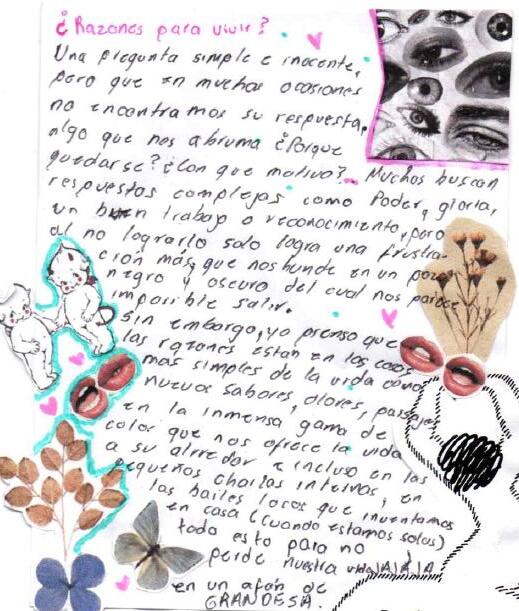 ¿Razones para vivir?
Una pregunta simple e inocente,
pero que en muchas ocasiones
no encontramos su respuesta,
algo que nos abruma ¿Porque
quedarse? ¿Con que motivo? Muchos buscan
respuestas complejas como Poder, gloria,
un buen trabajo o reconocimiento, pero
al no lograrlo solo logra una frustra-
ción más, que nos hunde en un pozo
negro y oscuro del cual nos parece
imposible salir.
Sin embargo, yo pienso que
las razones estan en las cosas
más simples de la vida como
nuevos sabores, olores, paisajes
en la inmensa gama de
color que nos ofrece la vida
a su alrredor e incluso en las
pequeños charlas intensivas, en
los bailes locos que inventamos
en casa (cuando estamos solos)
todo esto para no
perde nuestra vida JAJAJA
en un afán de
GRANDESA